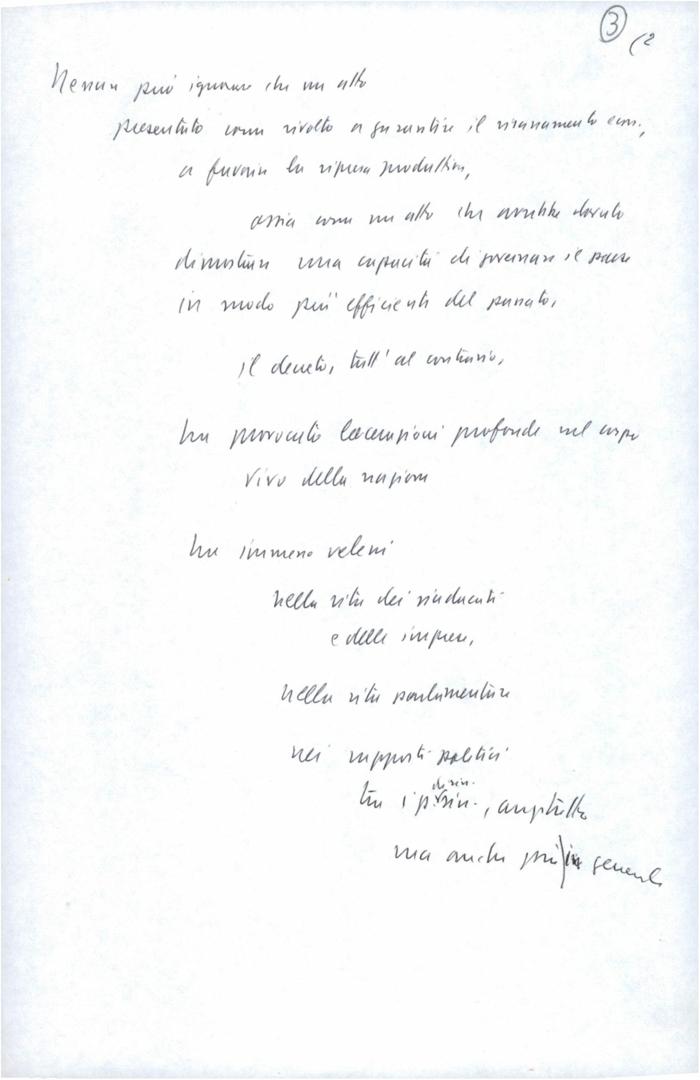 3 (2
Nessun può ignorare che un atto
presentato come rivolto a garantire il risanamento econ.,
a favorire la ripresa produttiva,
ossia come un atto che avrebbe dovuto
dimostrare una capacità di governare il paese
in modo più efficiente del passato,
il decreto, tutt'al contrario,
ha provocato lacerazioni profonde nel corpo
vivo della nazione
ha immesso veleni
nella vita dei sindacati
e delle imprese,
nella vita parlamentare
nei rapporti politici
di sin.
tra i p. , anzitutto
ma anche più in generale